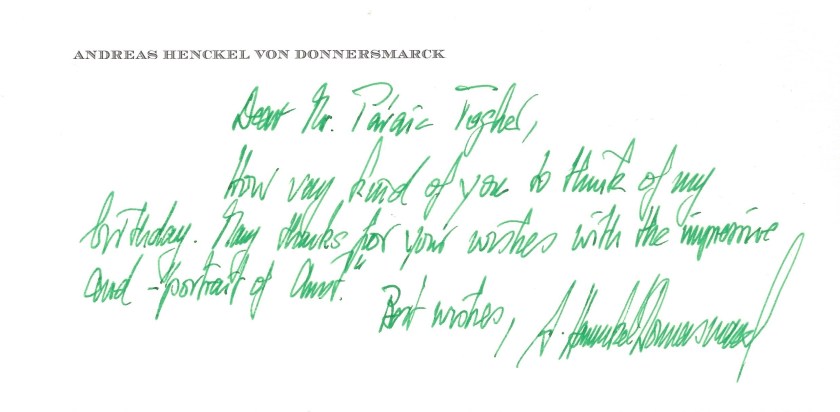 ANDREAS HENCKEL VON DONNERSMARCK
Dear Mr. Páraic
How very kind of you to think of my
birthday. Many thanks for your wishes with the impressive
"portrait of
Best wishes, A. Henckel Donnersmarck